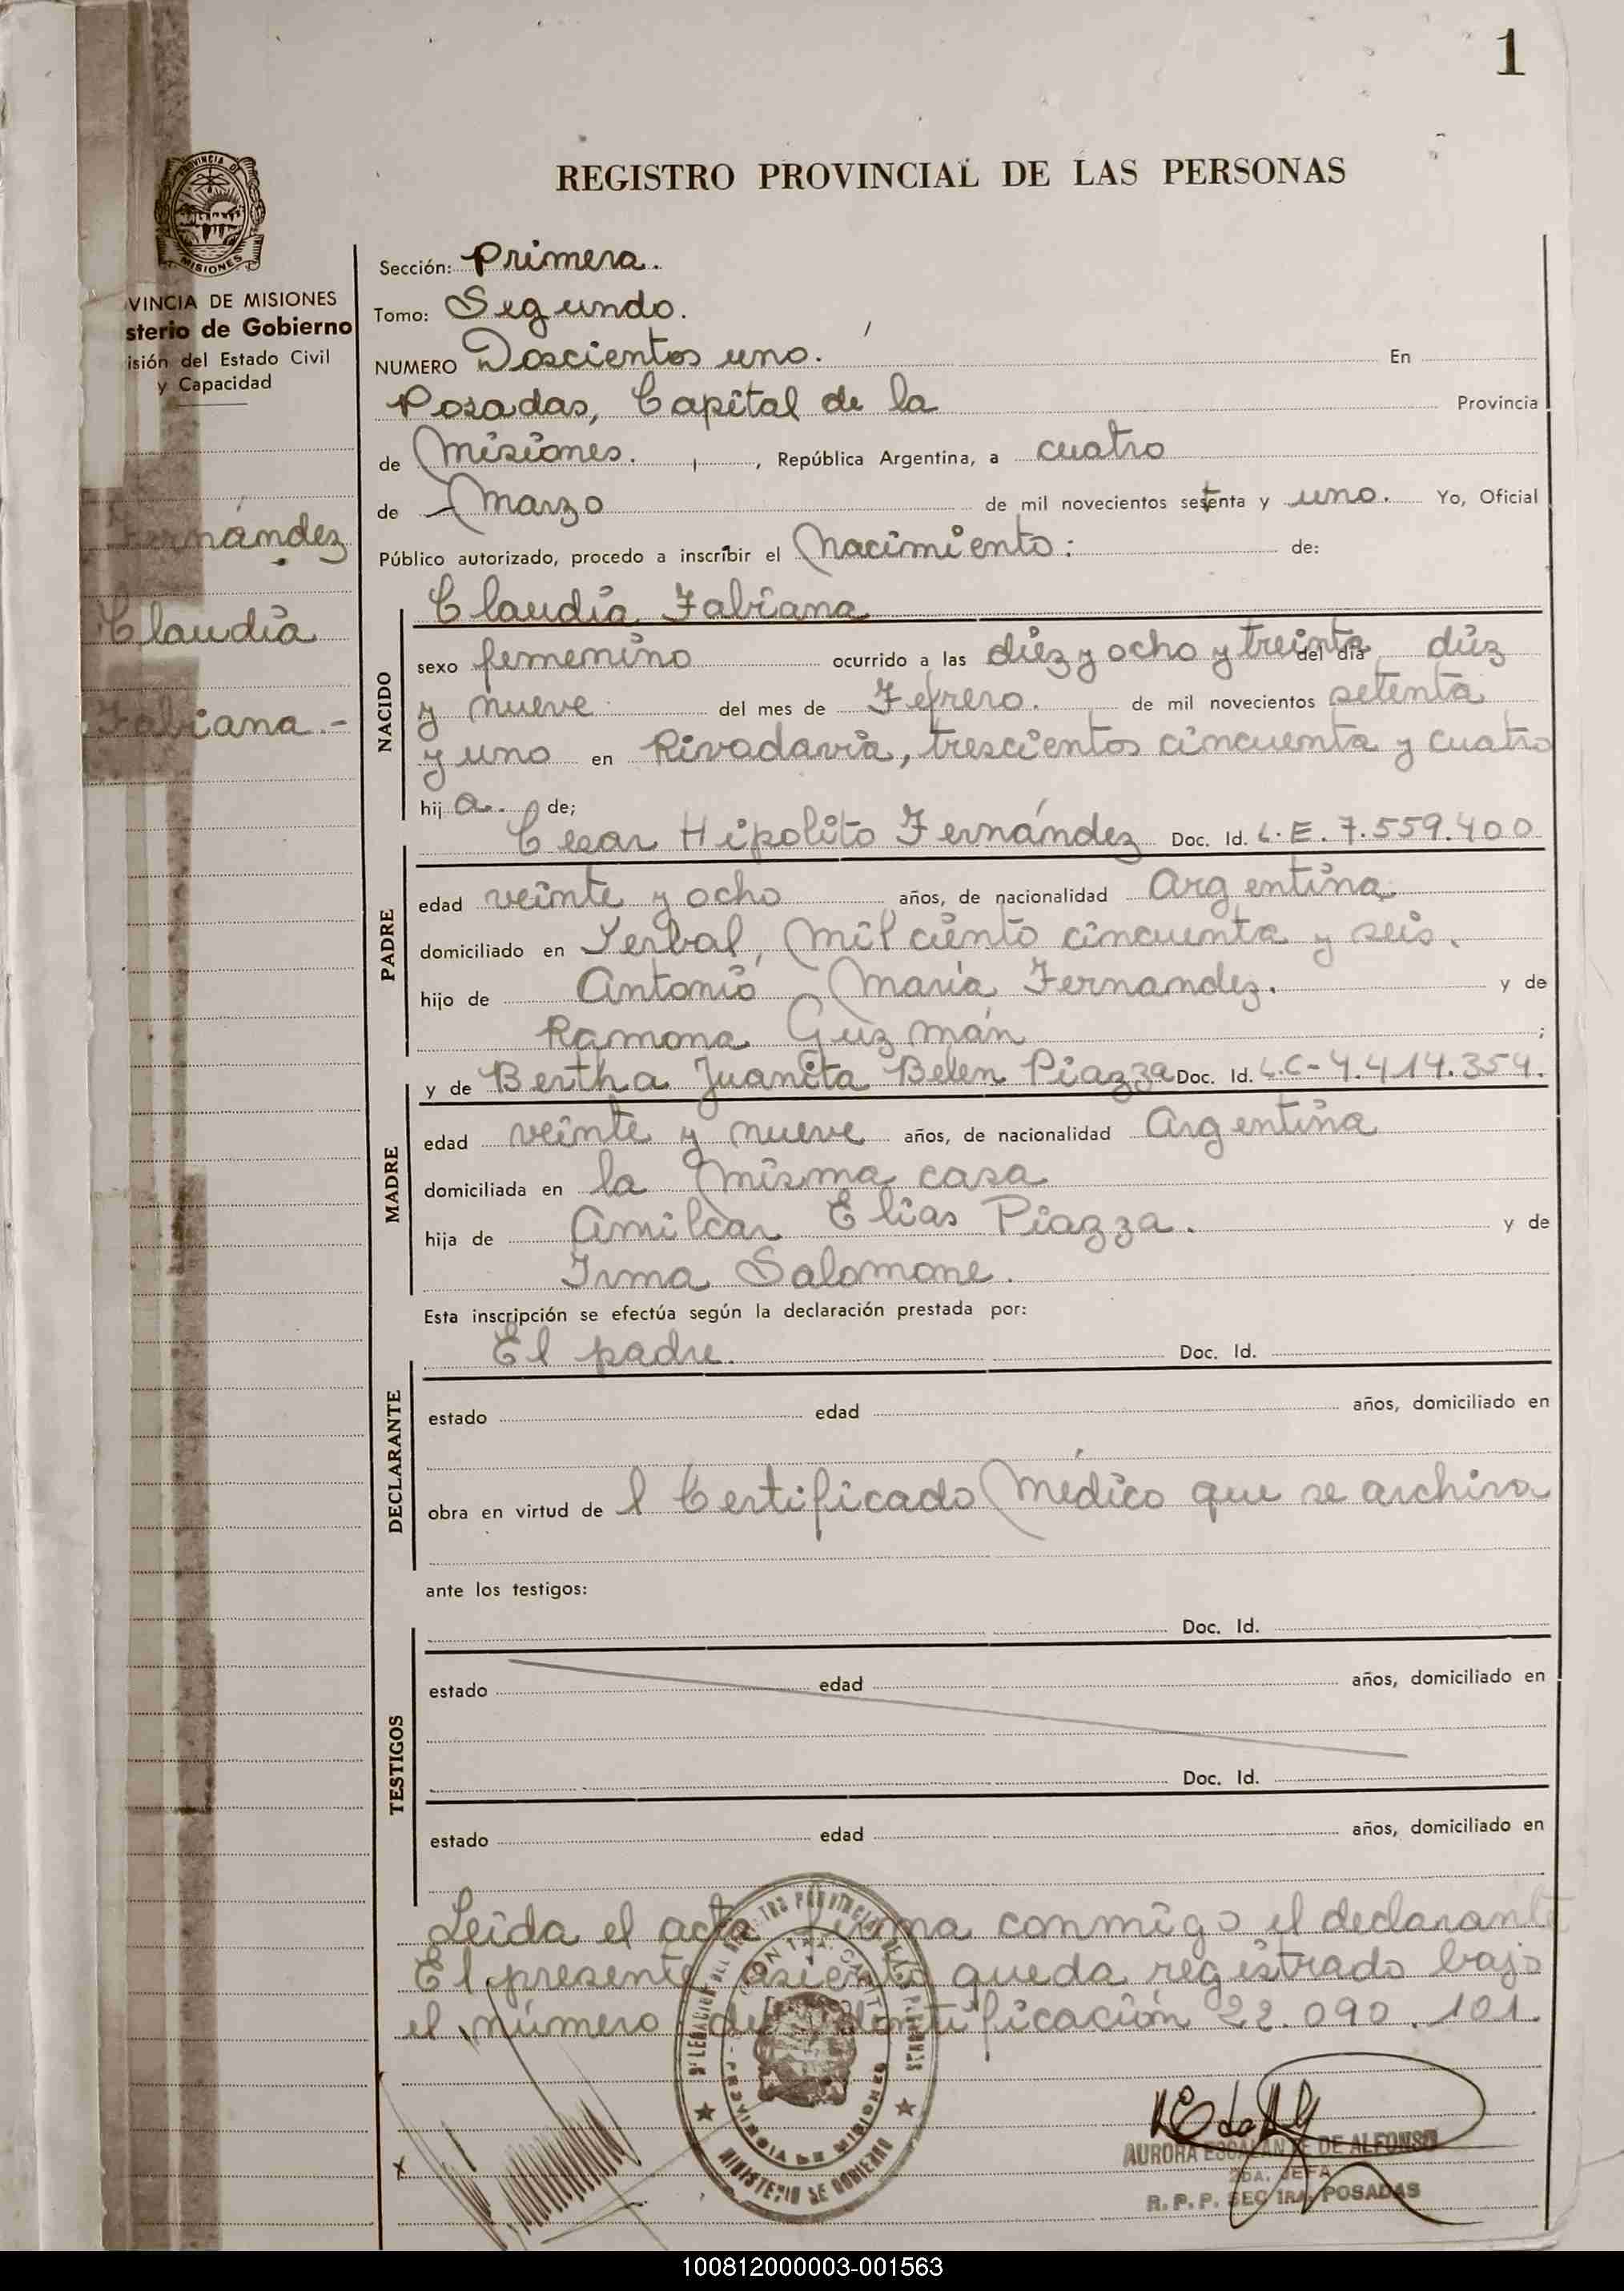 1
REGISTRO PROVINCIAL DE LAS PERSONAS
PROVINCIA DE
MISIONES
VINCIA DE MISIONES
sterio de Gobierno
isión del Estado Civil
y Capacidad
Fernández
Claudia
Fabiana.-
Sección: Primera.
Tomo: Segundo.
NUMERO Doscientos uno. En
Posadas, Capital de la Provincia
de Misiones. , República Argentina, a cuatro
de Marzo de mil novecientos setenta y uno. Yo, Oficial
Público autorizado, procedo a inscribir el Nacimiento: de:
NACIDO
Claudia Fabiana
sexo femenino ocurrido a las diez y ocho y treinta del día diez
y nueve del mes de Febrero. de mil novecientos setenta
y uno en Rivadavia, trescientos cincuenta y cuatro
hij a. de;
PADRE
Cesar Hipolito Fernández Doc. Id. L.E. 7.559.400
edad veinte y ocho años, de nacionalidad Argentina
domiciliado en Yerbal, Mil ciento cincuenta y seis.
hijo de Antonio María Fernandez. y de
Ramona Guzmán ;
MADRE
y de Bertha Juanita Belen Piazza Doc. Id. L.C-4.414.354.
edad veinte y nueve años, de nacionalidad Argentina
domiciliada en la misma casa
hija de Amilcar Elias Piazza. y de
Irma Salomone.
Esta inscripción se efectúa según la declaración prestada por:
DECLARANTE
El padre. Doc. Id.
estado edad años, domiciliado en
obra en virtud de l Certificado Médico que se archiva
ante los testigos:
TESTIGOS
Doc. Id.
estado edad años, domiciliado en
Doc. Id.
estado edad años, domiciliado en
Leida el acta firma conmigo el declarante
El presente asiento queda registrado bajo
el número de identificación 22.090.101.
DELEGACION DEL REGISTRO PROVINCIAL DE LAS PERSONAS
PROVINCIA DE MISIONES
MINISTERIO DE GOBIERNO
AURORA ESCALANTE DE ALFONSO
2DA. JEFA
R.P.P. SEC 1RA. POSADAS
x
100812000003-001563